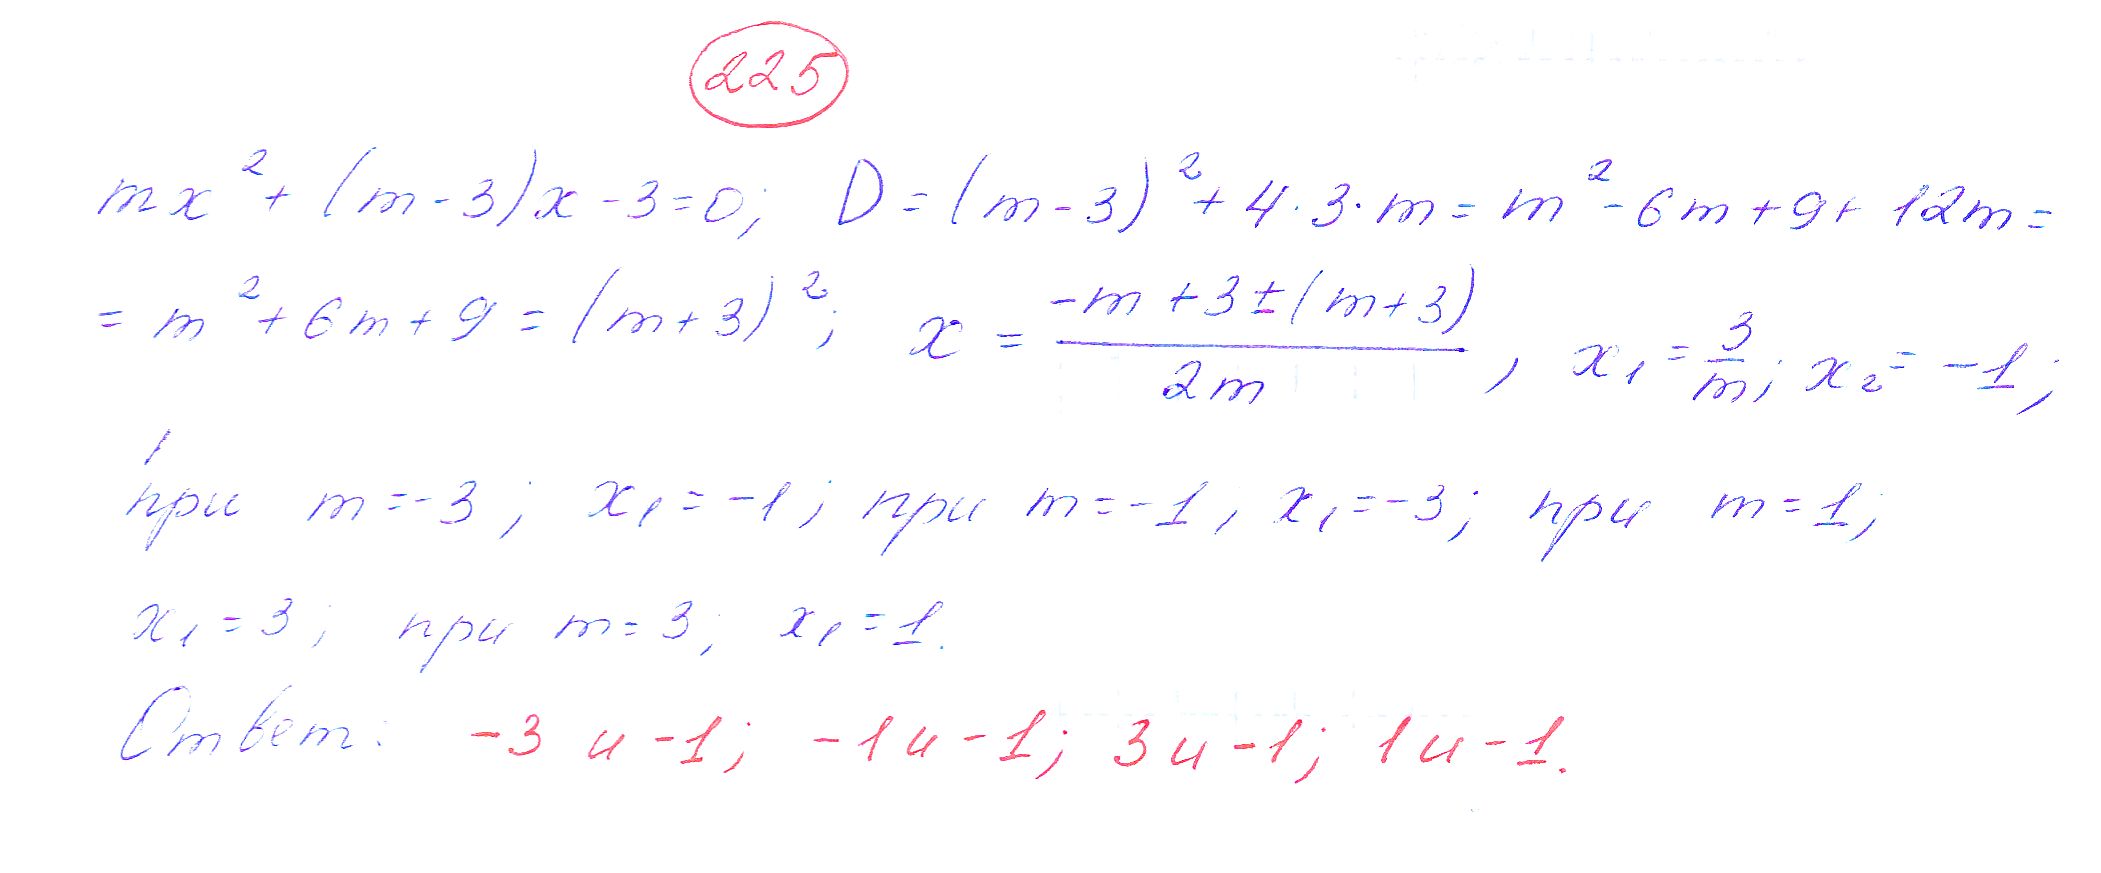 225
mx² + (m-3)x - 3 = 0; D = (m-3)² + 4·3·m = m² - 6m + 9 + 12m =
= m² + 6m + 9 = (m+3)²; x = (-m+3±(m+3))/(2m), x₁ = 3/m; x₂ = -1;
при m = -3; x₁ = -1; при m = -1, x₁ = -3; при m = 1;
x₁ = 3; при m = 3; x₁ = 1.
Ответ: -3 и -1; -1 и -1; 3 и -1; 1 и -1.